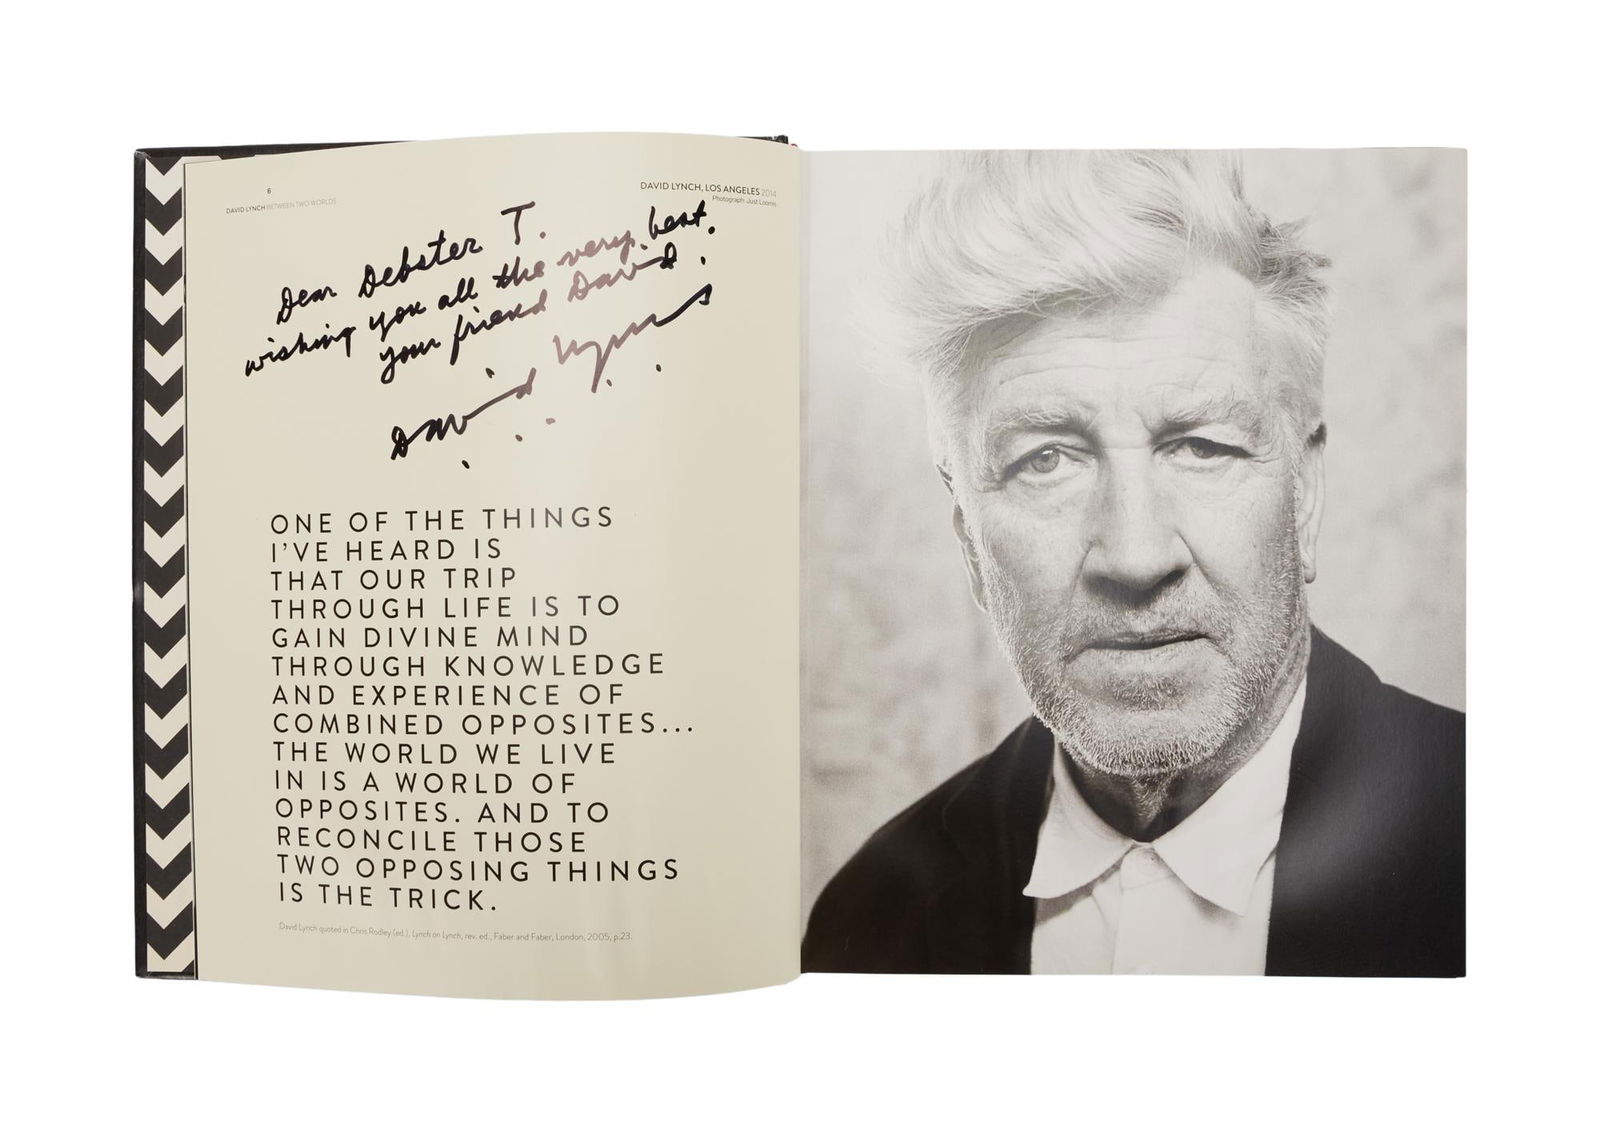 6
DAVID LYNCH BETWEEN TWO WORLDS
DAVID LYNCH, LOS ANGELES 2014
Photograph: Just Loomis
Dear Debster T.
wishing you all the very best.
your friend David.
David Lynch
ONE OF THE THINGS
I'VE HEARD IS
THAT OUR TRIP
THROUGH LIFE IS TO
GAIN DIVINE MIND
THROUGH KNOWLEDGE
AND EXPERIENCE OF
COMBINED OPPOSITES...
THE WORLD WE LIVE
IN IS A WORLD OF
OPPOSITES. AND TO
RECONCILE THOSE
TWO OPPOSING THINGS
IS THE TRICK.
David Lynch quoted in Chris Rodley (ed.), Lynch on Lynch, rev. ed., Faber and Faber, London, 2005, p.23.